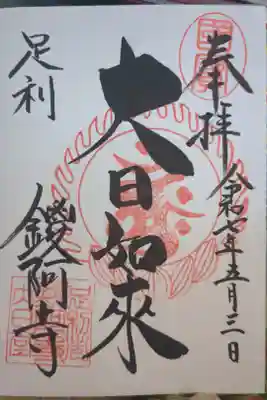 奉拝
令和七年五月三日
大日如來
足利
鑁阿寺